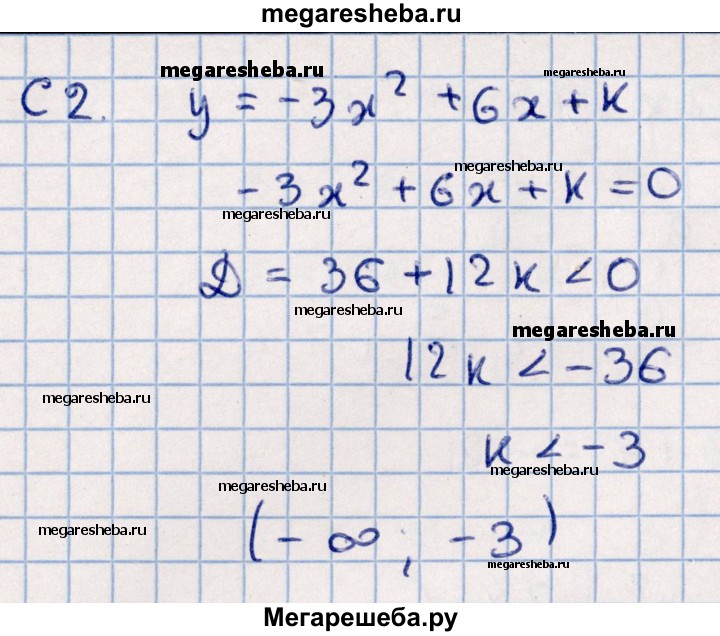 megaresheba.ru
megaresheba.ru megaresheba.ru
С 2. y = -3x² + 6x + k
megaresheba.ru
-3x² + 6x + k = 0
megaresheba.ru
Д = 36 + 12k < 0
megaresheba.ru
megaresheba.ru
12k < -36
megaresheba.ru
k < -3
megaresheba.ru
megaresheba.ru
(-∞; -3)
megaresheba.ru
megaresheba.ru
Мегарешеба.ру